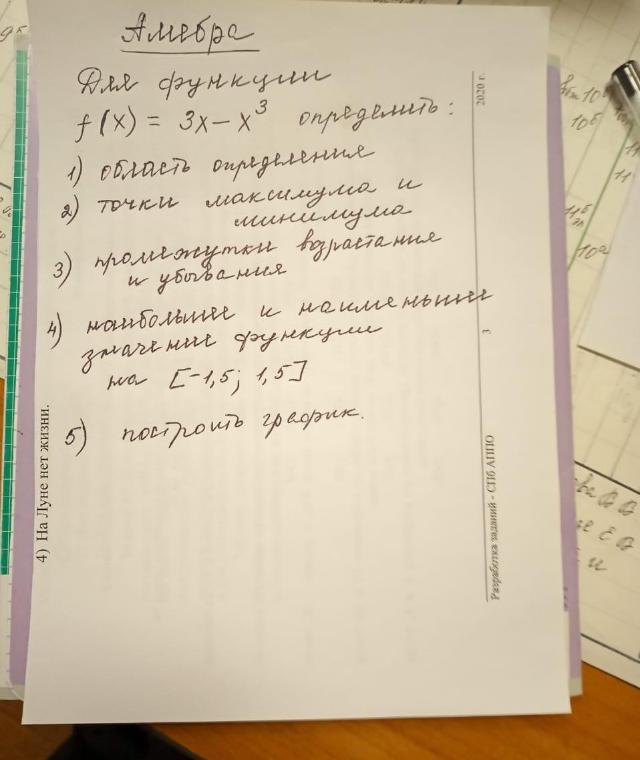 Алгебра
Для функции
f(x) = 3x – x³ определить:
1) область определения
2) точки максимума и
минимума
3) промежутки возрастания
и убывания
4) наибольшее и наименьшее
значение функции
на [-1,5; 1,5]
5) построить график.
4) На Луне нет жизни.
Разработка заданий - СПб АППО
3
2020 г.
10б
11
10а